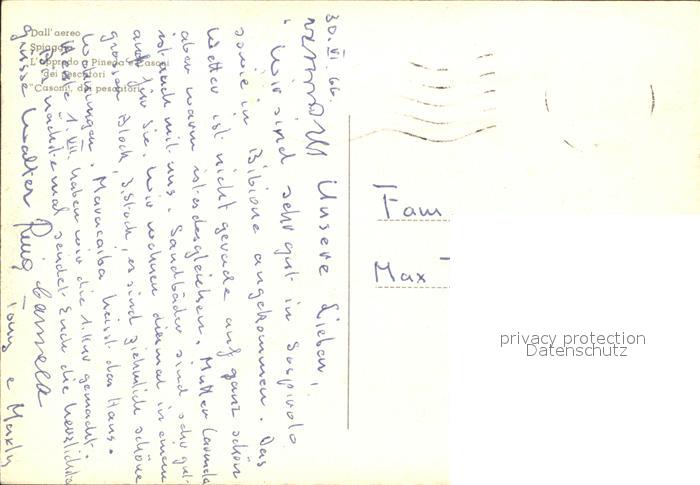 Dall'aereo
Spiaggia
L'approdo a Pineda e Casoni
dei pescatori
"Casoni" dei pescatori
30. VI. 66.
Unsere Lieben!
Wir sind sehr gut in
sowie in Bibione angekommen. Das
Wetter ist nicht gerade auf ganz schön
aber warm ist es desgleichen. Mutter
ist auch mit uns. Sandbäder sind sehr gut
auch für Sie. Wir wohnen diesmal in einem
grossen Block, 3. Stock, es sind ziemlich schöne
Wohnungen. Maracaiba heisst das Haus.
Heute 1. VII. haben wir die 1. Kur gemacht.
Bis nächstemal sendet Euch die herzlichsten
Grüsse Walter
Tony e
Fam
Max
privacy protection
Datenschutz